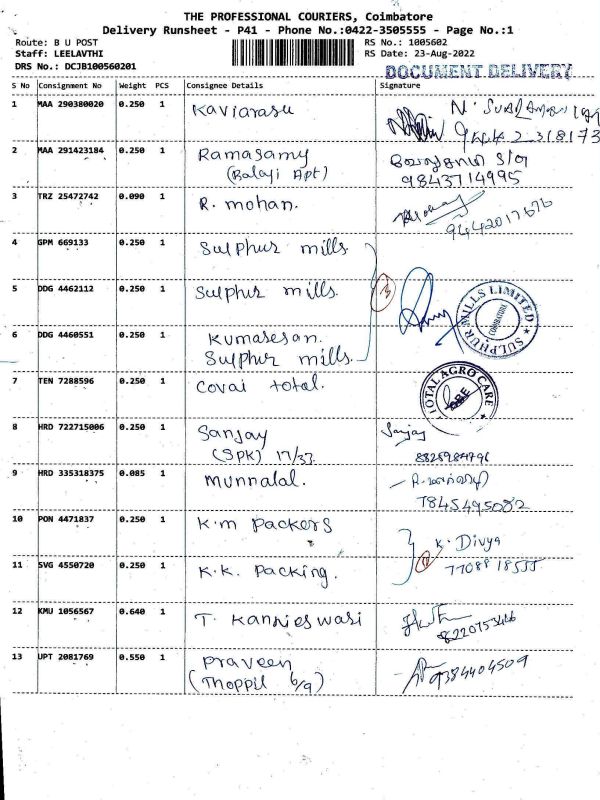 THE PROFESSIONAL COURIERS, Coimbatore
Delivery Runsheet - P41 - Phone No.:0422-3505555 - Page No.:1
Route: B U POST
Staff: LEELAVTHI
DRS No.: DCJB100560201
RS No.: 1005602
RS Date: 23-Aug-2022
DOCUMENT DELIVERY
S No Consignment No Weight PCS Consignee Details Signature
1 MAA 290380020 0.250 1 Kaviarasu
2 MAA 291423184 0.250 1 Ramasamy
(Balaji Apt)
9843714995
3 TRZ 25472742 0.090 1 R. mohan.
9442017676
4 GPM 669133 0.250 1 Sulphur mills
5 DDG 4462112 0.250 1 Sulphur mills.
3
SULPHUR MILLS LIMITED
COIMBATORE
6 DDG 4460551 0.250 1 Kumaresan.
Sulphur mills.
7 TEN 7288596 0.250 1 Covai total.
TOTAL AGRO CARE
8 HRD 722715006 0.250 1 Sanjay Sanjay
(SPK) 17/33
9 HRD 335318375 0.085 1 Munnalal.
7845495082
10 PON 4471837 0.250 1 K.m Packers
K. Divya
11 SVG 4550720 0.250 1 K.K. Packing.
7708818555
12 KMU 1056567 0.640 1 T. Kannieswari
13 UPT 2081769 0.550 1 Praveen
(Thoppil 6/9) 9384404509